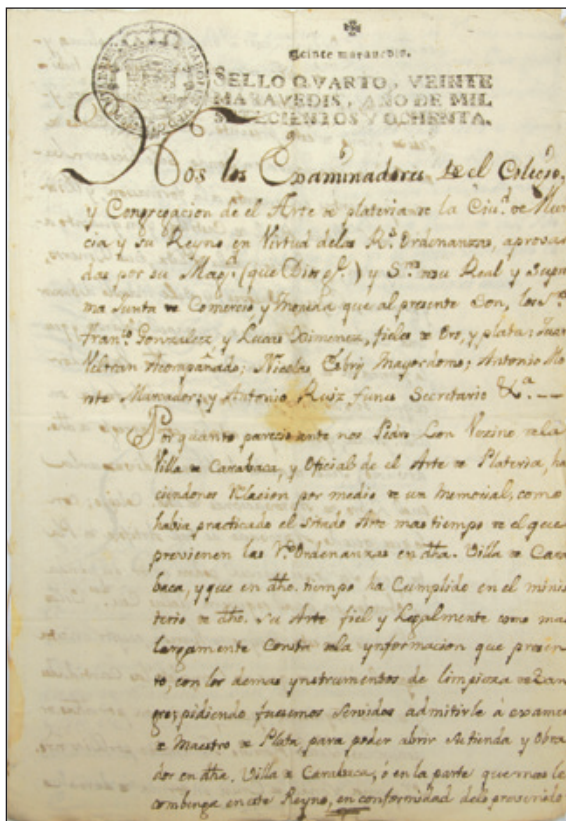 Veinte maravedis.
SELLO QVARTO, VEINTE
MARAVEDIS, AÑO DE MIL
SETECIENTOS Y OCHENTA.
Nos los Examinadores de el Colegio,
y Congregacion de el Arte de plateria de la Ciud. de Mur
cia y su Reyno en Virtud de las Rs. Ordenanzas, aprova
das por su Magd. (que Dios ge.) y Sres. de su Real y Supre
ma Junta de Comercio y Moneda que al presente son, los Sres.
Franco. Gonzalez y Lucas Ximenez, fieles de Oro, y plata; Juan
Veltran Acompañado; Nicolas Mayordomo; Antonio Mo
rote Marcador; y Antonio Ruiz Secretario &a.
Por quanto parecio ante nos Pedro Leon Vezino de la
Villa de Carabaca, y Oficial de el Arte de Plateria, ha
ciendonos Relacion por medio de un Memorial, como
habia practicado el sitado Arte mas tiempo de el que
previenen las Rs. Ordenanzas en dha. Villa de Cara
baca, y que en dho. tiempo ha Cumplido en el minis
terio de dho. su Arte fiel y Legalmente como mas
largamente Consta de la ynformacion que presen
to, con los demas ynstrumentos de limpieza de San
gre; pidiendo fuesemos servidos admitirle â examen
de Maestro de Plata, para poder abrir su tienda y Obra
dor en dha. Villa de Carabaca, ô en la parte que mas le
combenga en este Reyno, en conformidad de lo prevenido